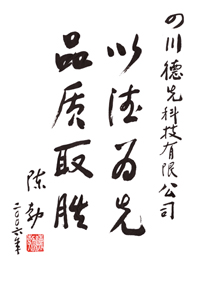 四川德先科技有限公司
以德为先
品质取胜
陈勃
二〇〇六年